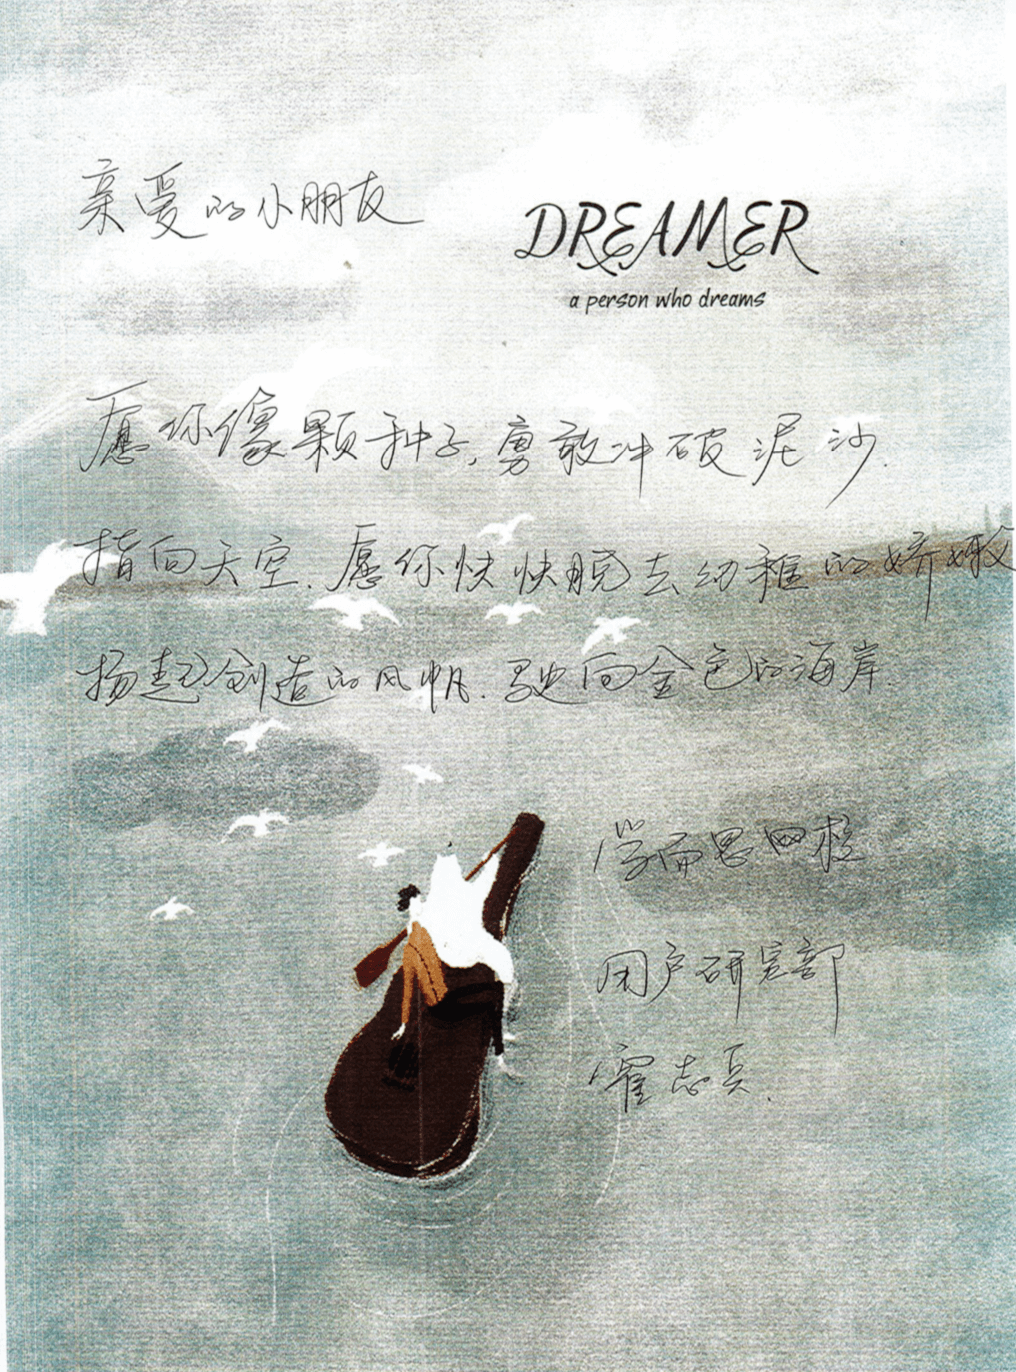 亲爱的小朋友
DREAMER
a person who dreams
愿你像颗种子,勇敢冲破泥沙.
指向天空.愿你快快脱去幼稚的娇嫩
扬起创造的风帆.驶向金色的海岸.
学而思网校
用户研究部
霍志兵.